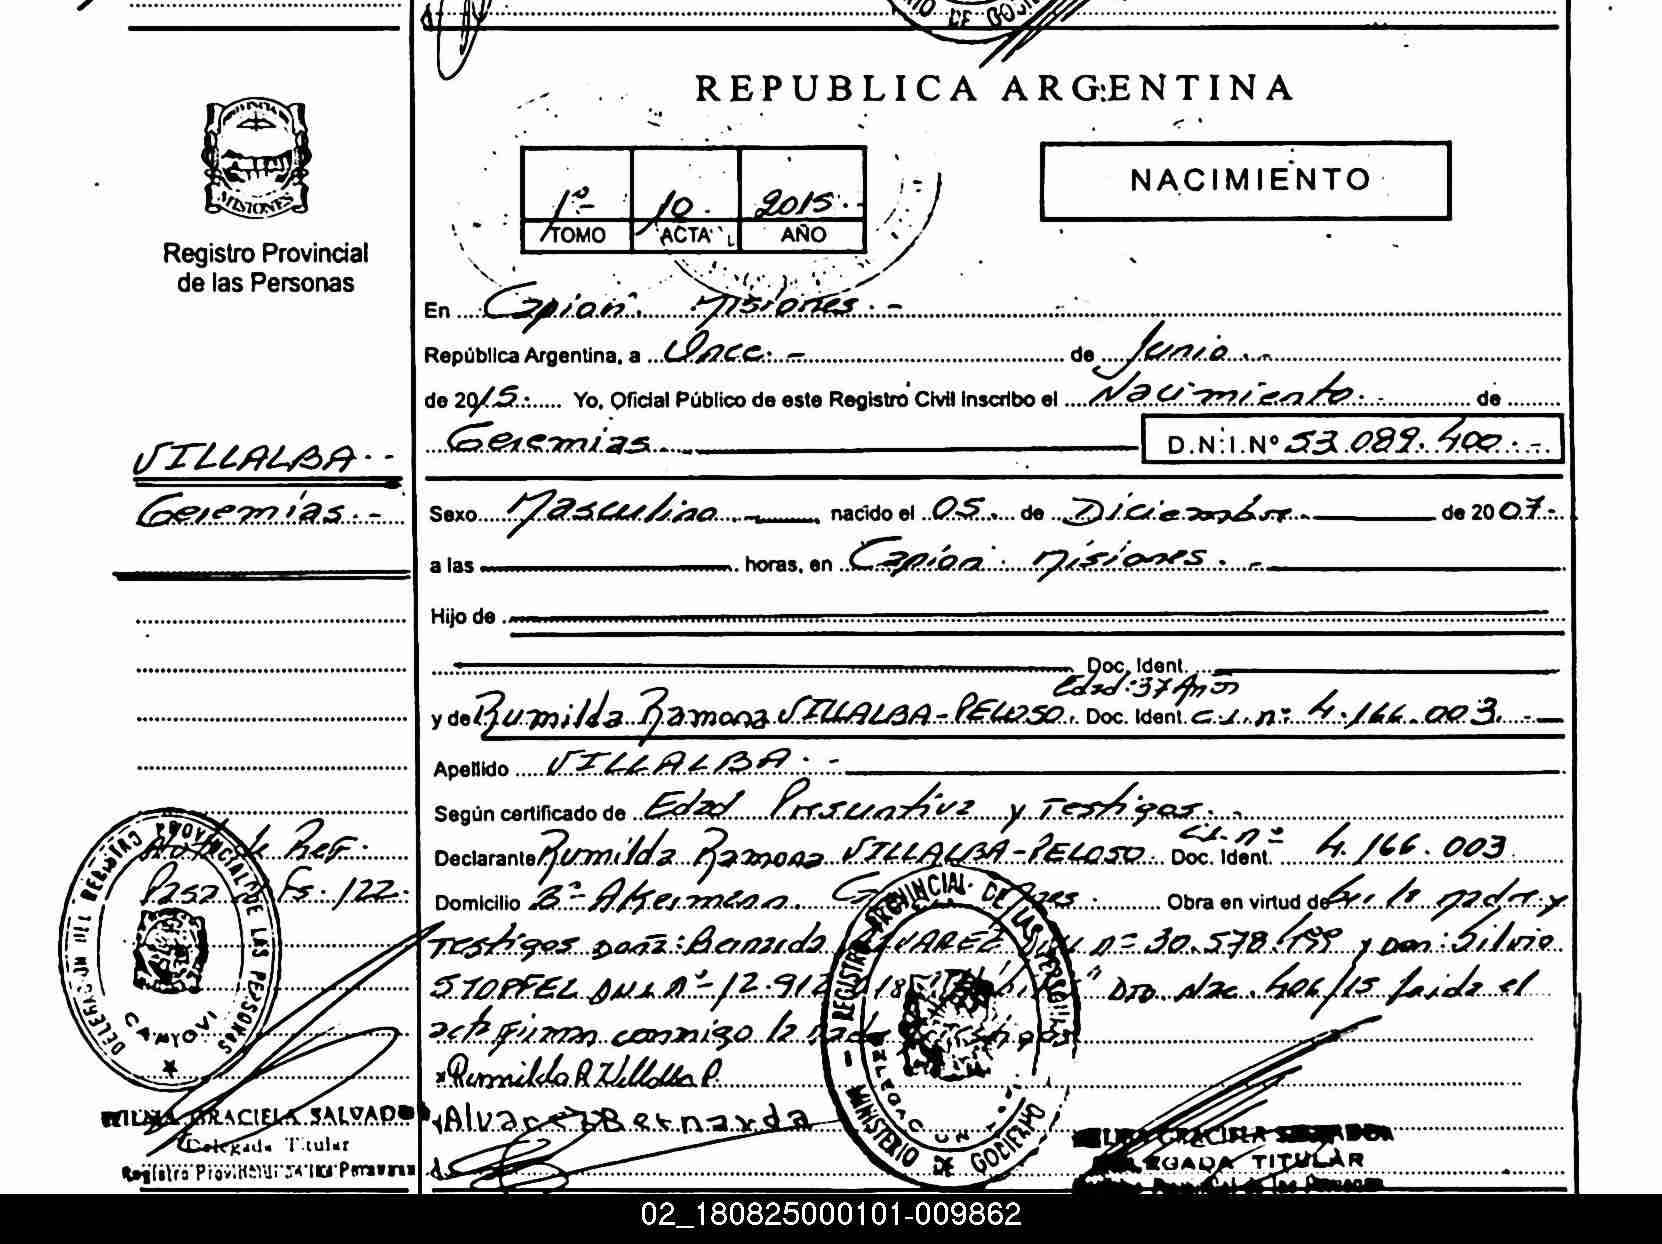 REPUBLICA ARGENTINA
NACIMIENTO
1º- 10. 2015.-
TOMO ACTA AÑO
MISIONES
Registro Provincial
de las Personas
En Capiovi. Misiones.-
República Argentina, a Once.- de Junio.-
de 2015. Yo, Oficial Público de este Registro Civil Inscribo el Nacimiento.- de
Geremias. D.N.I.Nº 53.089.400.-
VILLALBA.-
Geremías.-
Sexo Masculino.- nacido el 05. de Diciembre.- de 2007.-
a las horas, en Capiovi. Misiones.-
Hijo de
Doc. Ident.
Edad: 37 Años
y de Rumilda Ramona VILLALBA-PELOSO. Doc. Ident. c.i. nº 4.166.003.-
Apellido VILLALBA.-
Según certificado de Edad Presuntiva y Testigos.-
Declarante Rumilda Ramona VILLALBA-PELOSO. Doc. Ident. c.i. nº 4.166.003
Nota de Ref.
Pasa Fs. 122.
Domicilio Bº Akerman. Obra en virtud de Ser la madre y
Testigos doña: Bernarda ALVAREZ DNI nº 30.578. y Don: Silvio
STOFFEL DNI nº 12.912 Dto. Nac. 406/15 Leida el
acta firman conmigo la
Rumilda R Villalba P.
Alvarez Bernarda
DELEGACION DEL REGISTRO PROVINCIAL DE LAS PERSONAS
CAPIOVI
REGISTRO PROVINCIAL DE LAS PERSONAS
MINISTERIO DE GOBIERNO
WILMA GRACIELA SALVADOR
Delegada Titular
Registro Provincial de las Personas
GRACIELA SALVADOR
DELEGADA TITULAR
02_180825000101-009862